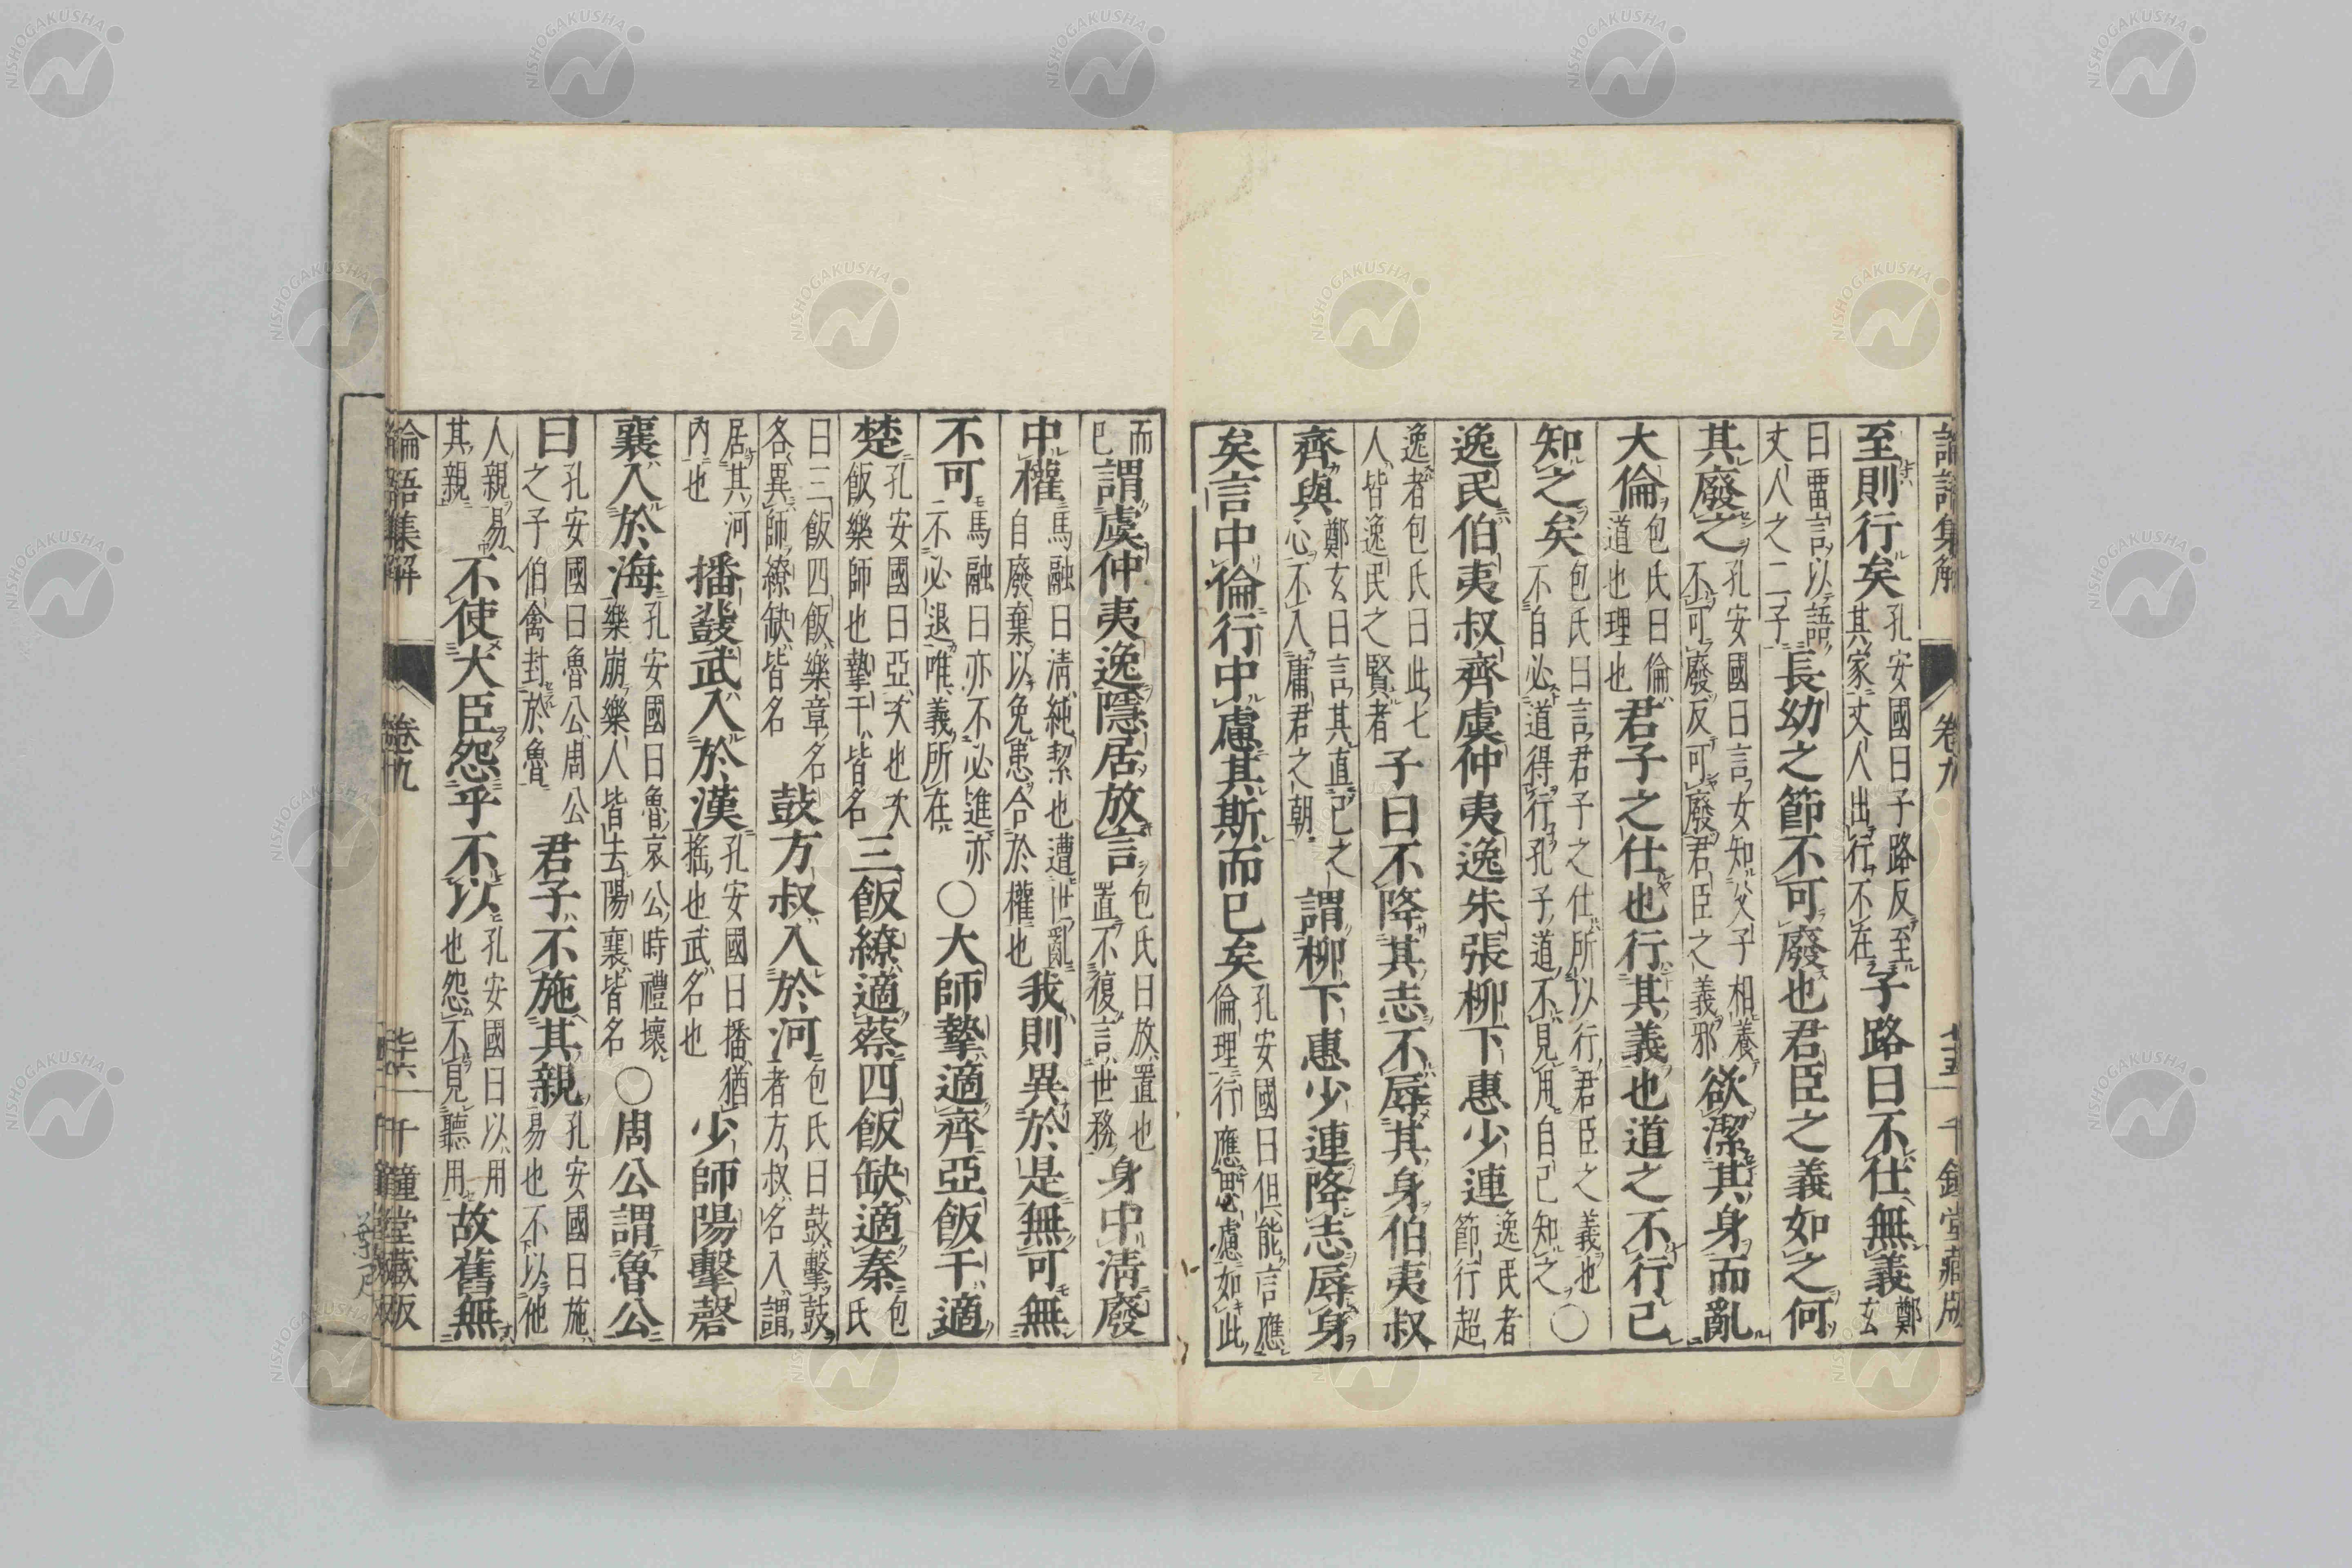 論語集解 卷九 七十五 千鍾堂藏版
至則行矣 孔安國曰子路反至其家丈人出行不在 子路曰不仕無義 鄭玄
曰畱言以語丈人之二子 長幼之節不可廢也君臣之義如之何
其廢之 孔安國曰言女知父子相養不可廢反可廢君臣之義邪 欲潔其身而亂
大倫 包氏曰倫道也理也 君子之仕也行其義也道之不行已
知之矣 包氏曰言君子之仕所以行君臣之義也不自必道得行孔子道不見用自已知之 ○
逸民伯夷叔齊虞仲夷逸朱張柳下惠少連 逸民者節行超
逸者包氏曰此七人皆逸民之賢者 子曰不降其志不辱其身伯夷叔
齊與 鄭玄曰言其直己之心不入庸君之朝 謂柳下惠少連降志辱身
矣言中倫行中慮其斯而已矣 孔安國曰但能言應倫理行應思慮如此
而已 謂虞仲夷逸隱居放言 包氏曰放置也置不復言世務 身中淸廢
中權 馬融曰淸純絜也遭世亂自廢棄以免患合於權也 我則異於是無可無
不可 馬融曰亦不必進亦不必退唯義所在 ○大師摯適齊亞飯干適
楚 孔安國曰亞次也次飯樂師也摯干皆名 三飯繚適蔡四飯缺適秦 包氏
曰三飯四飯樂章名各異師繚缺皆名 鼓方叔入於河 包氏曰鼓擊鼓者方叔名入謂
居其河內也 播鼗武入於漢 孔安國曰播猶搖也武名也 少師陽擊磬
襄入於海 孔安國曰魯哀公時禮壞樂崩樂人皆去陽襄皆名 ○周公謂魯公
曰 孔安國曰魯公周公之子伯禽封於魯 君子不施其親 孔安國曰施易也不以他
人親易其親 不使大臣怨乎不以 孔安國曰以用也怨不見聽用 故舊無
論語集解 卷九 七十六 千鍾堂藏版
NISHOGAKUSHA